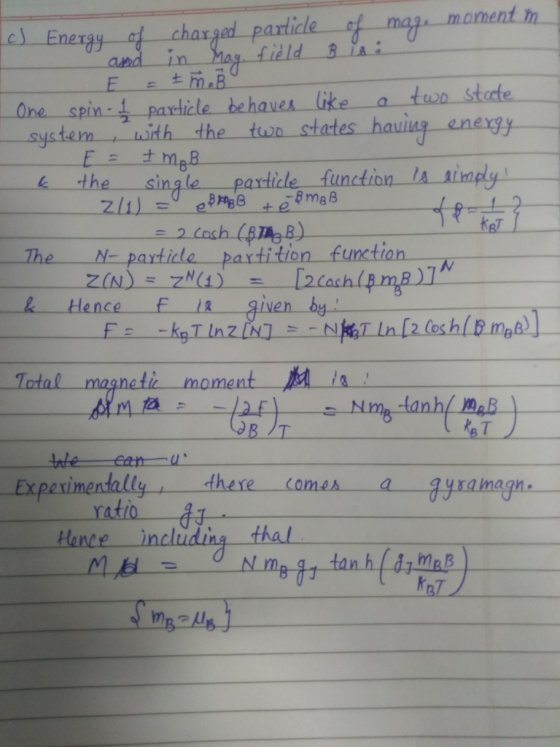 c) Energy of charged particle of mag. moment m
and in Mag. field B is:
E = ± m⃗.B⃗
One spin-1/2 particle behaves like a two state
system, with the two states having energy
E = ± m_B B
& the single particle function is simply:
Z(1) = e^{βm_B B} + e^{-βm_B B}
= 2 cosh (βm_B B) {β = 1/(k_B T)}
The N-particle partition function
Z(N) = Z^N(1) = [2cosh(β m_B B)]^N
& Hence F is given by:
F = -k_B T ln Z[N] = -N k_B T ln [2 cosh(β m_B B)]
Total magnetic moment is:
M = -(∂F/∂B)_T = N m_B tanh(m_B B/k_B T)
We can u.
Experimentally, there comes a gyramagn.
ratio g_J.
Hence including that.
M = N m_B g_J tanh(g_J m_B B/k_B T)
{m_B = μ_B}